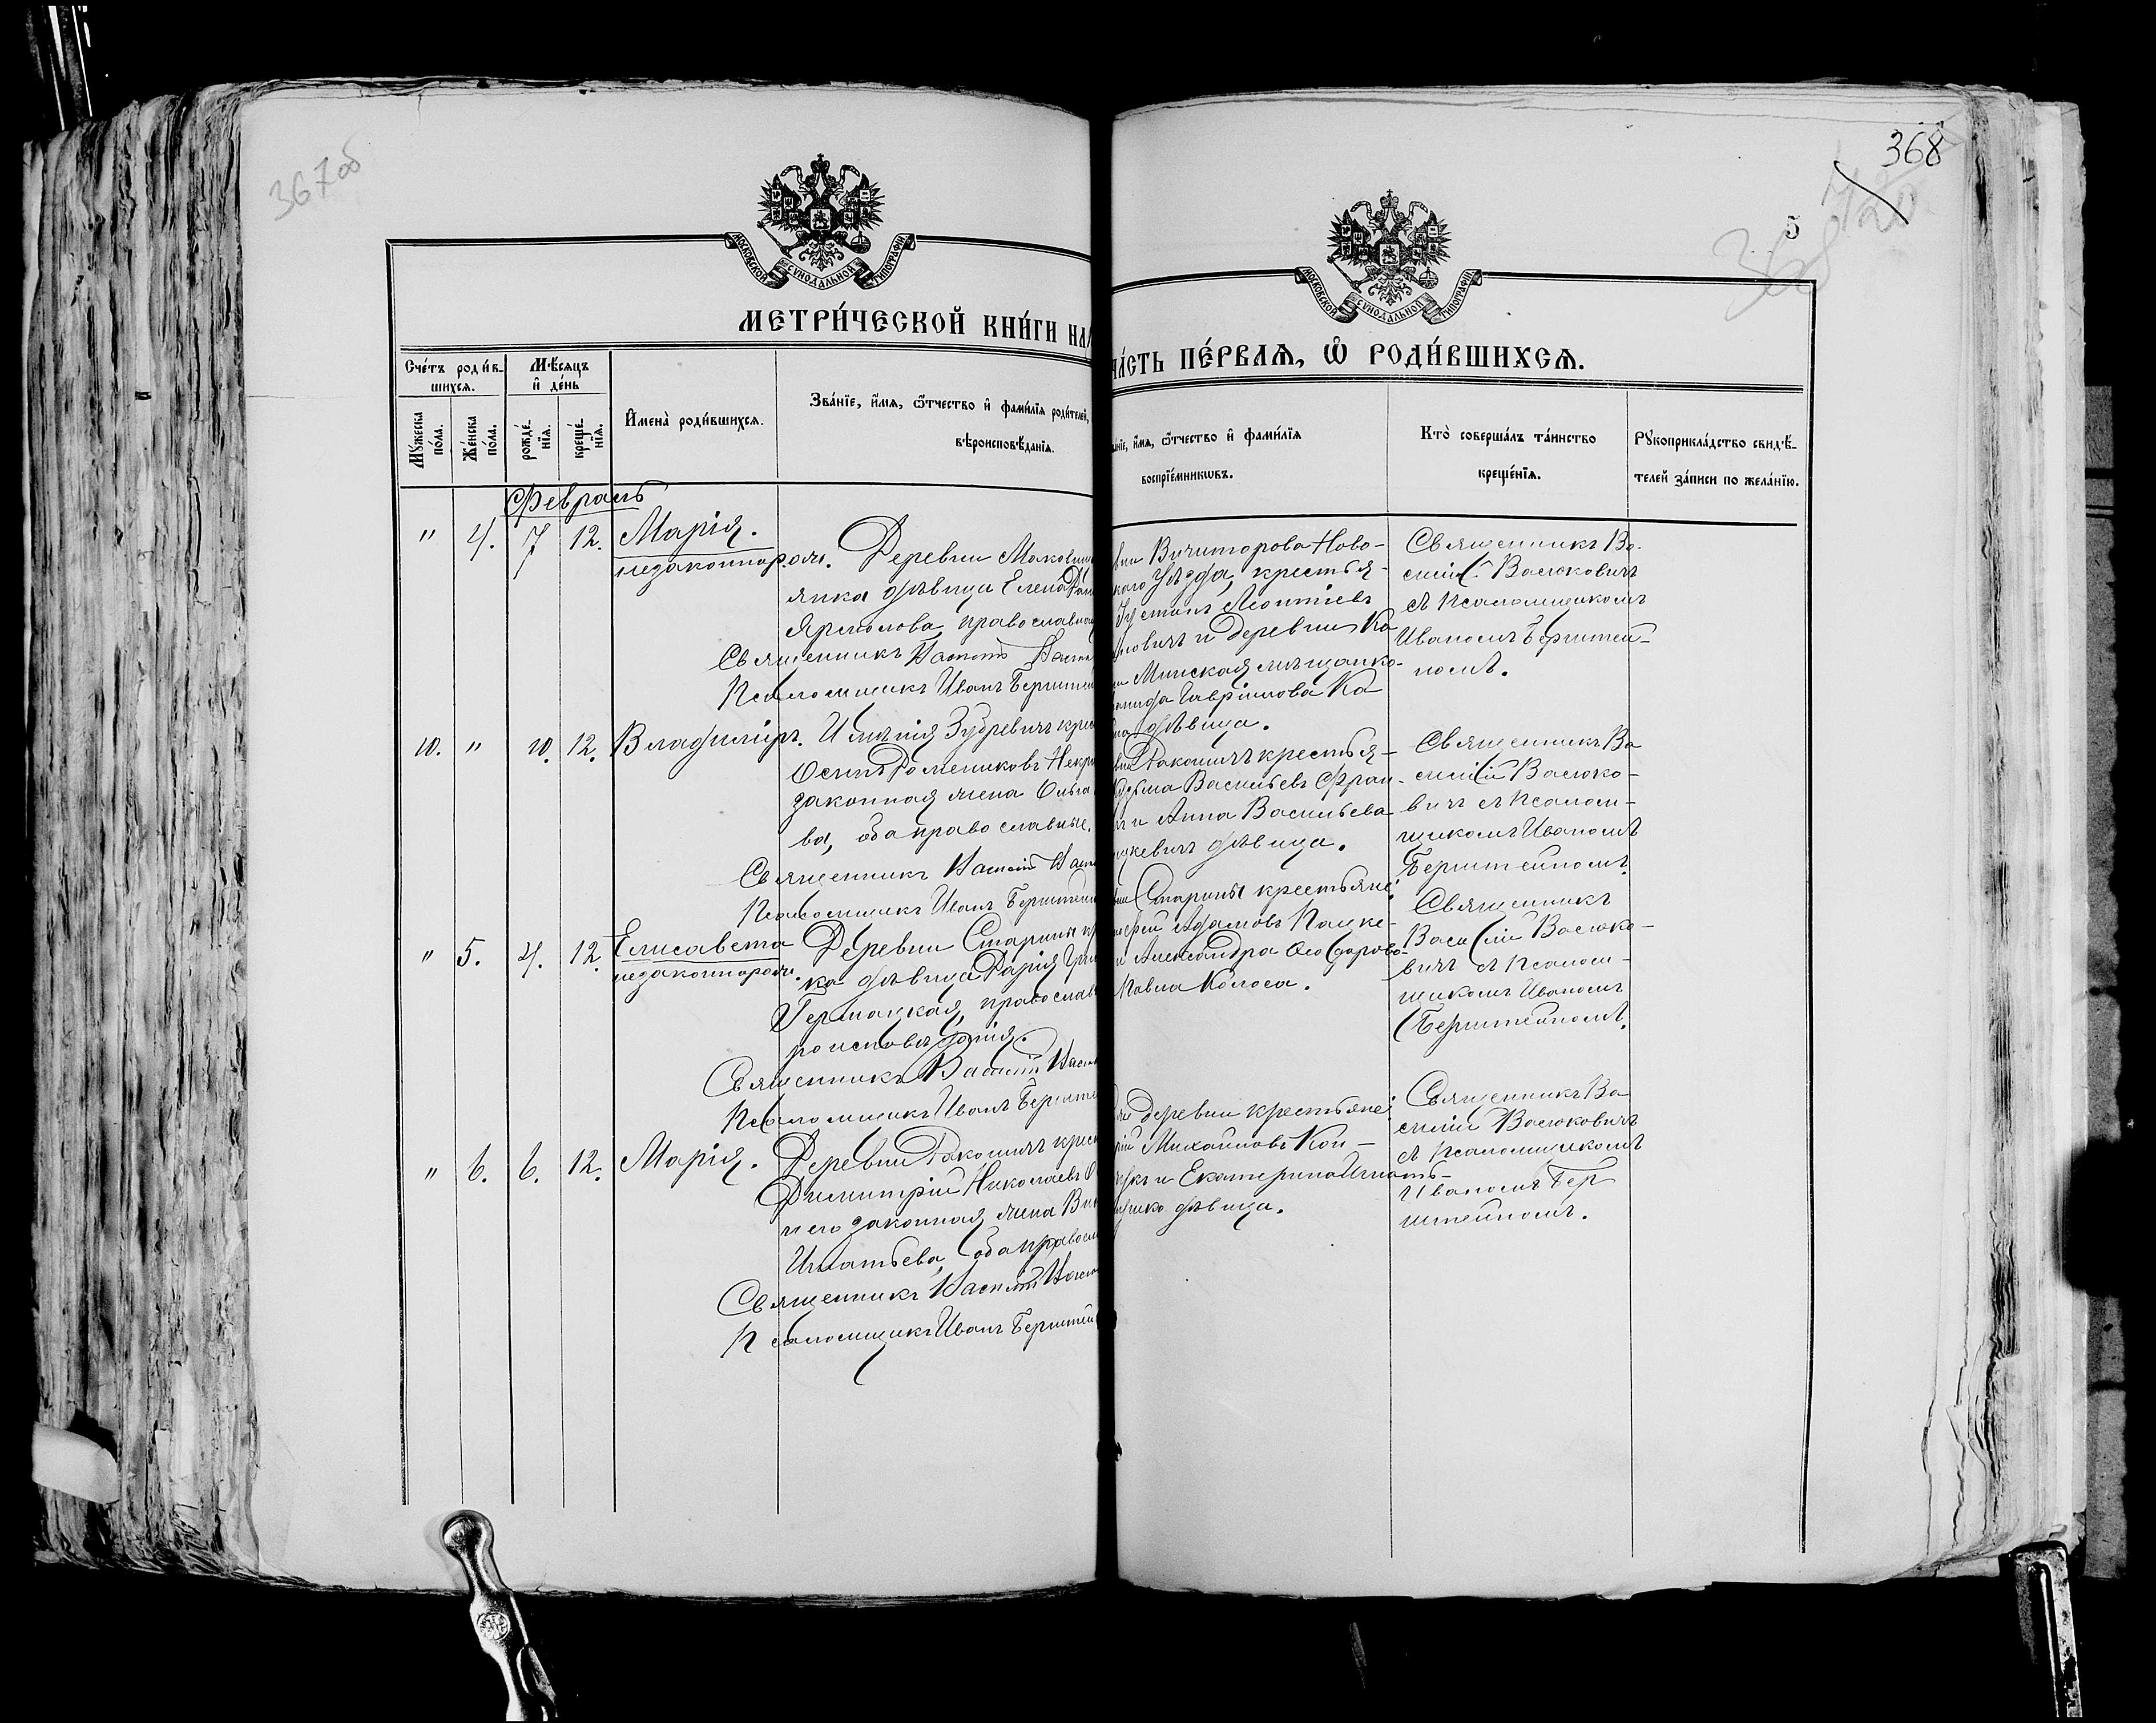 367об
368
5
МОСКОВСКОЙ СѴНОДАЛЬНОЙ ТИПОГРАФІИ
МОСКОВСКОЙ СѴНОДАЛЬНОЙ ТИПОГРАФІИ
МЕТРИ́ЧЕСКОЙ КНИ́ГИ НА
ЧА́СТЬ ПЕ́РВАЯ, Ѡ РОДИ́ВШИХСЯ.
Сче́тъ роди́в-
шихся.
Мѣ́сяцъ
и де́нь
Му́жеска по́ла.
Же́нска по́ла.
рожде́нїя.
креще́нїя.
Имена̀ роди́вшихся.
Зва́нїе, и́мя, ѻ́тчество и фами́лїя роди́телей,
вѣроисповѣ́данїя.
а́нїе, и́мя, ѻ́тчество и фами́лїя
воспрїе́мникѡвъ.
Кто̀ соверша́лъ та́инство
креще́нїя.
Рукоприкла́дство свидѣ́-
телей за́писи по жела́нїю.
Февраль
" 4. 7 12. Марія.
незаконнорож.
Деревни
янка дѣвица Елена
Ярмолова, православна
Священникъ Василій
Псаломщикъ Иванъ Бернштей
вни Ново-
каго Уѣзда, крестья-
Леонтіевъ
новичъ и деревни Ка
Минская мѣщанка
Гавріилова Ка
дѣвица.
Священникъ Ва-
силій Васюковичъ
съ Псаломщикомъ
Иваномъ Бернштей-
номъ.
10. " 10. 12. Владиміръ.
Имѣнія Зубревичъ крес
Осипъ Некра
законная жена Ольга
ва, оба православные.
Священникъ Василій Васю
Псаломщикъ Иванъ Бернштейн
вни Ракошичъ крестья-
Васильевъ Фран-
и Анна Васильева
цкевичъ дѣвица.
Священникъ Ва
силій Васюко-
вичъ съ Псалом-
щикомъ Иваномъ
Бернштейномъ.
" 5. 4. 12. Елисавета
незаконнорож.
Деревни Старины кр
ка дѣвица Дарія
православ
роисповѣданія.
Священникъ Василій Васю
Псаломщикъ Иванъ Берншт
вни Старины крестьяне:
Адамовъ Пацке-
и Александра Ѳеодорова
Павла Колоса.
Священникъ
Василій Васюко-
вичъ съ Псалом-
щикомъ Иваномъ
Бернштейномъ.
" 6. 6. 12. Марія.
Деревни Ракошичъ крест
Димитрій Николаевъ
и его законная жена
Игнатьева, оба правосл
Священникъ Василій Васю
Псаломщикъ Иванъ Бернштей
деревни крестьяне:
рій Михайловъ Кон-
и Екатерина Игнать-
дѣвица.
Священникъ Ва
силій Васюковичъ
съ Псаломщикомъ
Иваномъ Берн
штейномъ.